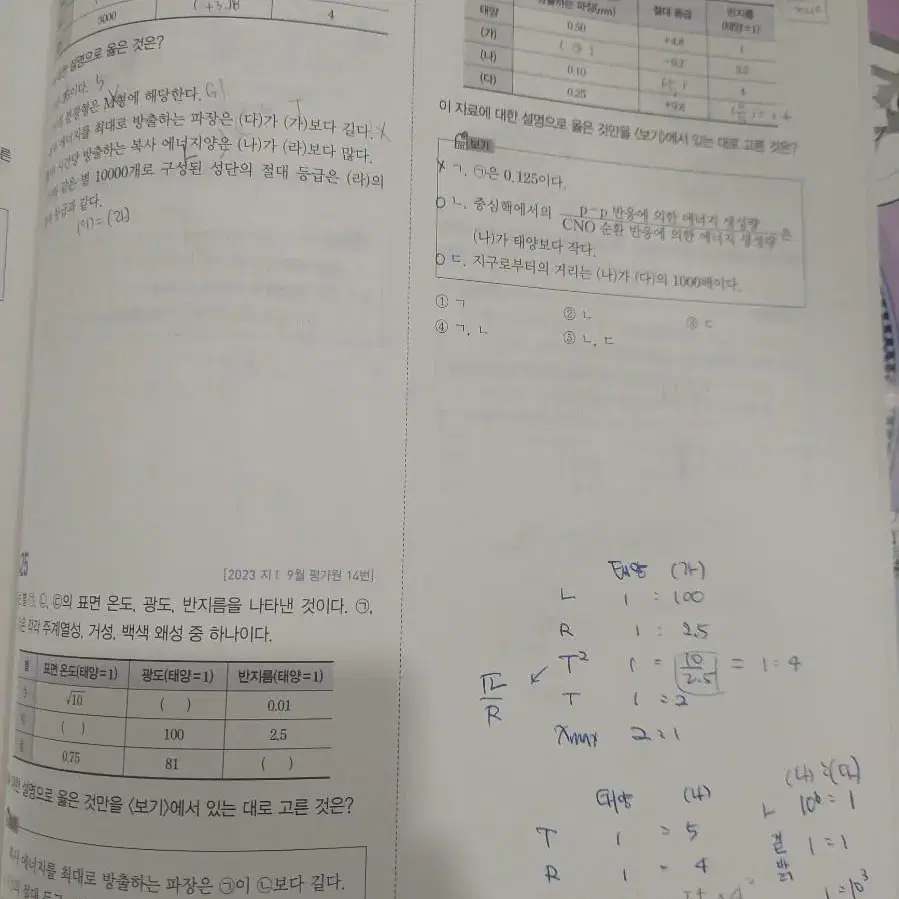 3000
4
설명으로 옳은 것은?
M형에 해당한다. G
에너지를 최대로 방출하는 파장은 (다)가 (가)보다 길다.
시간당 방출하는 복사 에너지양은 (나)가 (라)보다 많다.
같은 별 10000개로 구성된 성단의 절대 등급은 (라)의
등급과 같다.
[2023 지Ⅰ 9월 평가원 14번]
㉢의 표면 온도, 광도, 반지름을 나타낸 것이다. ㉠,
각각 주계열성, 거성, 백색 왜성 중 하나이다.
별 표면 온도(태양=1) 광도(태양=1) 반지름(태양=1)
√10 ( ) 0.01
( ) 100 2.5
0.75 81 ( )
설명으로 옳은 것만을 <보기>에서 있는 대로 고른 것은?
에너지를 최대로 방출하는 파장은 ㉠이 ㉡보다 길다.
절대 등급 반지름
(태양=1)
태양 0.50 +4.8 1
(가) ( ㉠ ) 2.5
(나) 0.10 4
(다) 0.25 +9.8
이 자료에 대한 설명으로 옳은 것만을 <보기>에서 있는 대로 고른 것은?
보기
ㄱ. ㉠은 0.125이다.
ㄴ. 중심핵에서의 p-p 반응에 의한 에너지 생성량
CNO 순환 반응에 의한 에너지 생성량 은
(나)가 태양보다 작다.
ㄷ. 지구로부터의 거리는 (나)가 (다)의 1000배이다.
① ㄱ ② ㄴ ③ ㄷ
④ ㄱ, ㄴ ⑤ ㄴ, ㄷ
태양 (가)
L 1 : 100
R 1 : 2.5
T² 1 = 10/2.5 = 1:4
√L/R
T 1 : 2
λmax 2:1
태양 (나)
T 1 : 5
R 1 : 4
(나):(다)
L 10⁶ : 1
겉 1 = 1
1 = 10³